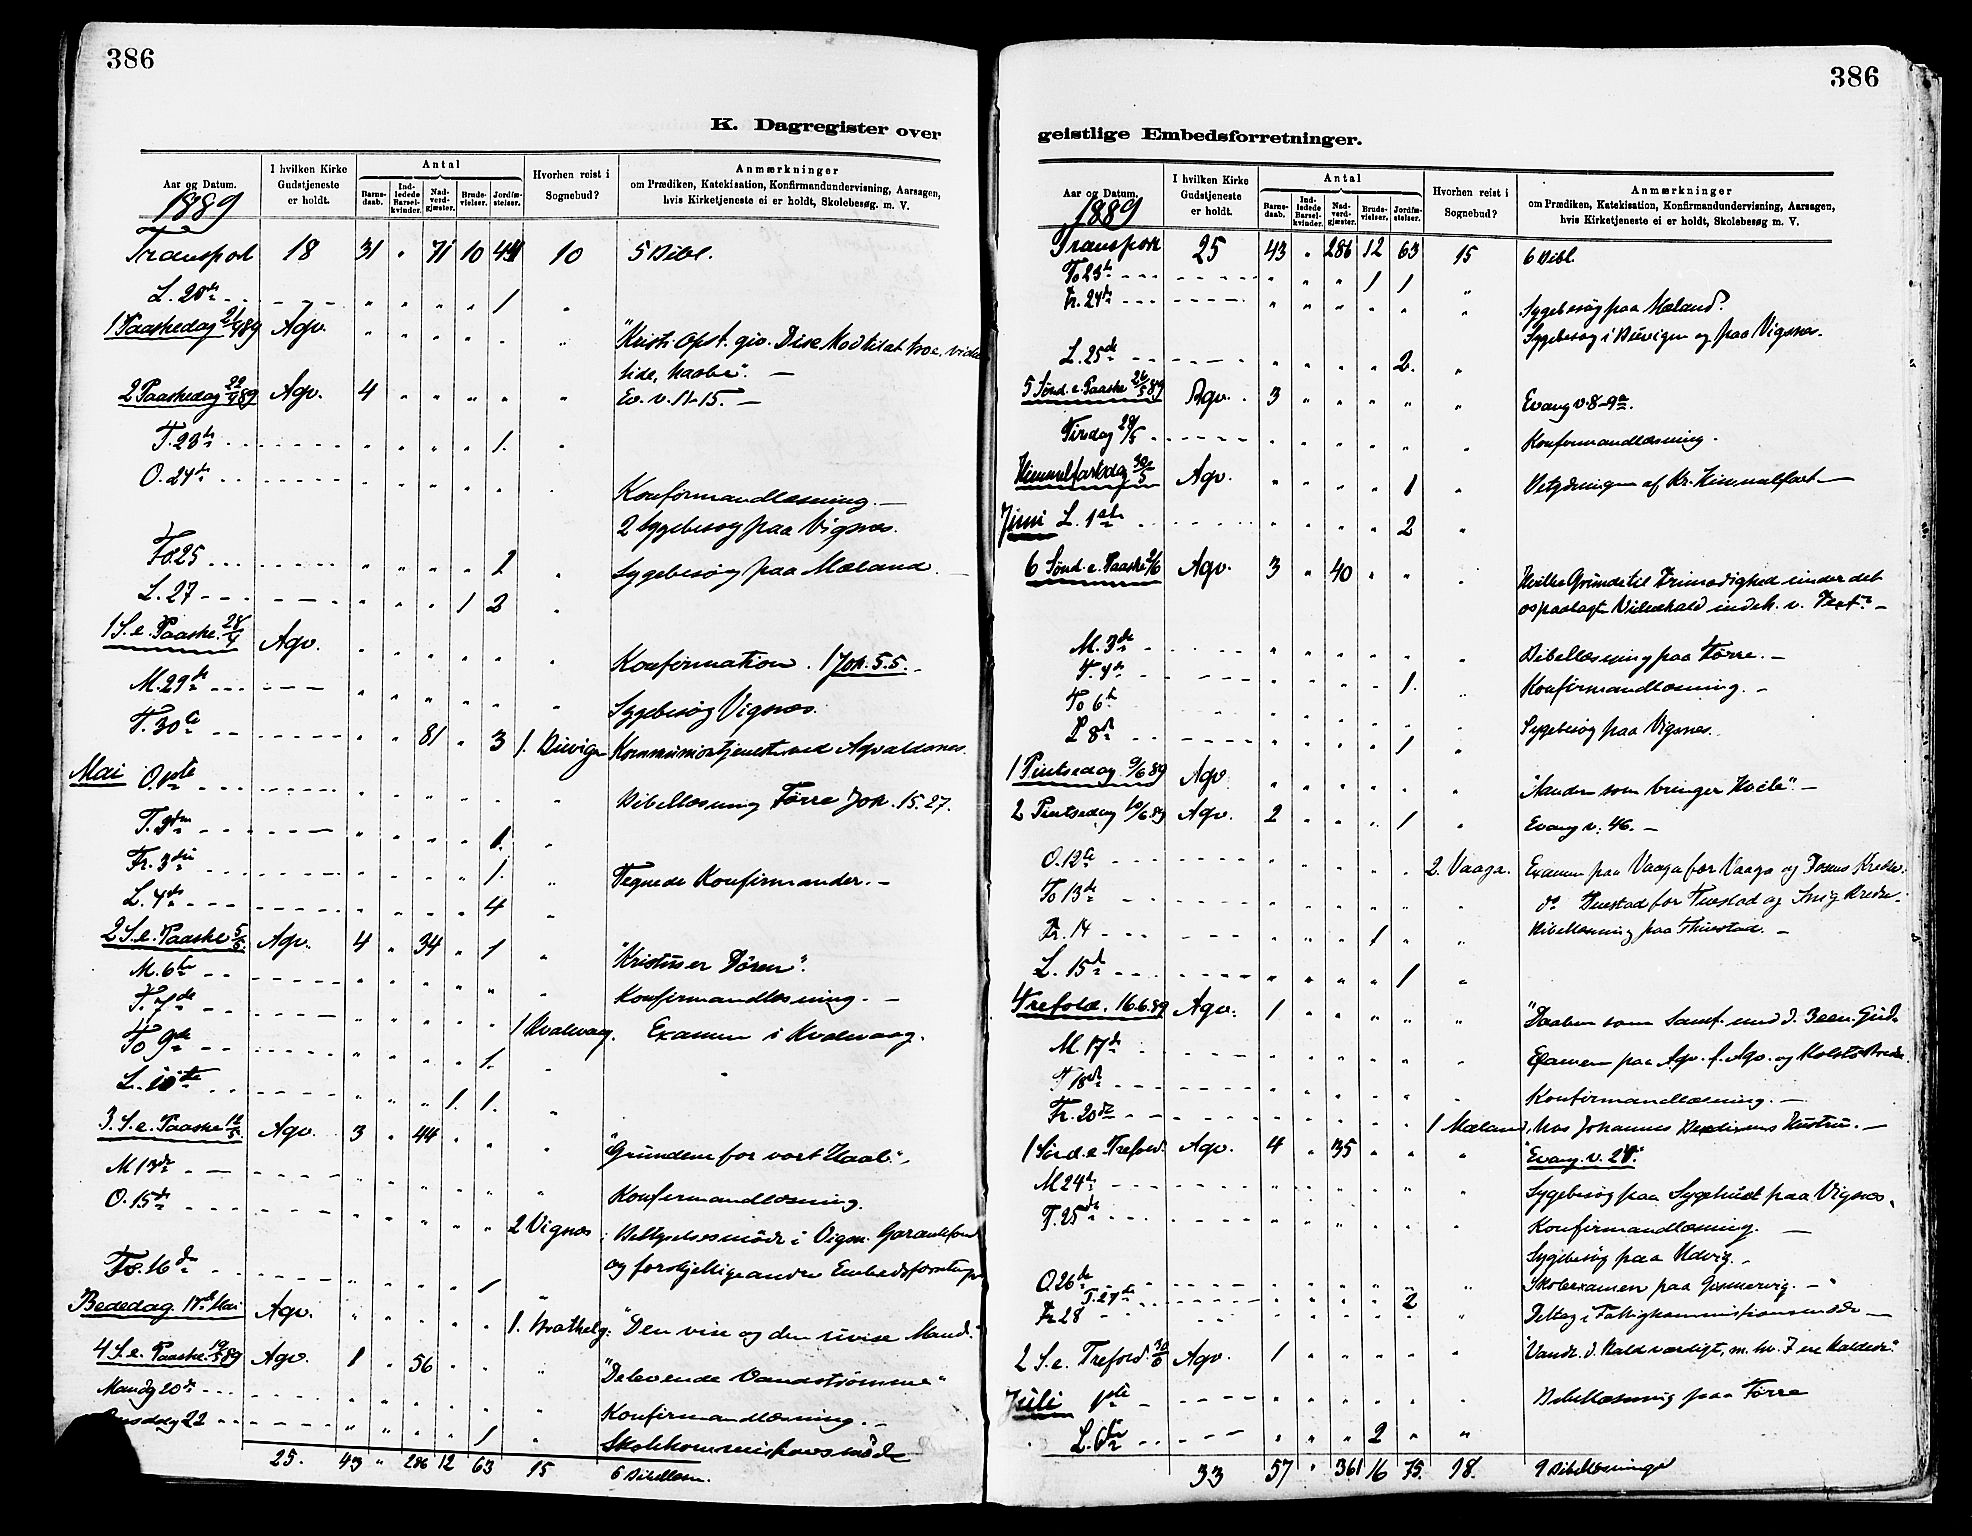 386
K. Dagregister over
Aar og Datum.
1889
I hvilken Kirke Gudstjeneste er holdt.
Antal
Barnedaab.
Indledede Barselkvinder.
Nadverdgjæster.
Brudevielser.
Jordfæstelser.
Hvorhen reist i Sognebud?
Anmærkninger
om Prædiken, Katekisation, Konfirmandundervisning, Aarsagen,
hvis Kirketjeneste ei er holdt, Skolebesøg m. V.
Transport 18 31 " 71 10 44 10 5 Bibl.
L. 20de 1
1 Paaskedag 21/4 89 Agv. "Kristi Opst. giv.
tide, haabe". —
2 Paaskedag 22/4 89 Agv. 4 Ev. v. 11-15. —
T. 23de 1.
O. 24de Konfirmandlæsning. —
2 Sygebesøg paa Vigsnæs.
To. 25 1 Sygebesøg paa Mæland.
L. 27 1 2
1 S. e. Paaske. 28/4 Agv. Konfirmation. 1 Joh. 5.5. —
M. 29de Sygebesøg Vigsnæs.
T. 30te 81 3 1. Kommuniontjeneste ved Agvaldsnes.
Mai O. 1ste Bibellæsning Førre Joh. 15.27.
T. 1.
Fr. 3die 1. Tegnede Konfirmander. —
L. 4de 4
2 S. e. Paaske 5/5 Agv. 4 " 34 " 1 "Kristus er Døren".
M. 6te Konfirmandlæsning. —
T. 7de 1 Kvalevaag. Examen i Kvalevaag.
To 9de 1.
L. 1. 1.
3. S. e. Paaske 12/5 Agv. 3 " 44 "Grundene for vort Haab". —
M 13de Konfirmandlæsning.
O. 15de 2 Vigsnæs i Vigsn.
og forskjellige andre
To. 16de 1
Bededag. 17de Mai Agv. 1. "Den vise og den uvise Mand."
4 S. e. Paaske. 19/5 89 Agv. 1 " 56 "De levende Vandstrømme"
Mandg 20de Konfirmandlæsning. —
Onsdag 22 1 Skolekommissionsmøde
25. 43 " 286 12 63 15 6 Bibellæsn.
386
geistlige Embedsforretninger.
Aar og Datum.
1889
I hvilken Kirke Gudstjeneste er holdt.
Antal
Barnedaab.
Indledede Barselkvinder.
Nadverdgjæster.
Brudevielser.
Jordfæstelser.
Hvorhen reist i Sognebud?
Anmærkninger
om Prædiken, Katekisation, Konfirmandundervisning, Aarsagen,
hvis Kirketjeneste ei er holdt, Skolebesøg m. V.
Transport 25 43 " 286 12 63 15 6 Bibl.
To 23de 1 1
Fr. 24de Sygebesøg paa Mæland.
Sygebesøg i og paa Vigsnæs.
L. 25de 2.
5 Sønd. e. Paaske 26/5 89 Agv. 3 Evang v. 8-9a.
Tirsdag 28/5 Konfirmandlæsning.
Himmelfartsdag 30/5 Agv. 1 Betydningen af Kr. Himmelfart —
Juni L. 1ste 2
6 Sønd. e. Paaske 2/6 Agv. 3 " 40 Hvilke Grunde til Frimodighed under det
os paalagte indeh. v. Text. —
M. 3de Bibellæsning paa Førre. —
T. 4de 1. Konfirmandlæsning. —
To 6te Sygebesøg paa Vigsnes.
L 8de 1
1 Pintsedag 9/6 89 Agv. "Aanden som bringer Hvile". —
2 Pintsedag 10/6 89 Agv. 2 1 Evang v. 46. —
O. 12te 2. Vaaga. Examen paa Vaaga for Vaaga og Kredse.
To 13de do for og Kredse.
Fr. 14 1 Bibellæsning paa —
L. 15de 1
Trefold. 16.6.89 Agv. 1 "Daaben som Samf. med d.
M. 17de Examen paa Agv. f. Agv. og
T 18de Konfirmandlæsning. —
Fr. 20de 1 Mæland, hos Johannes Hustru. —
1 Sønd. e. Trefold. Agv. 4 " 35 "Evang. v. 21."
M 24de Sygebesøg paa Sygehuset paa Vigsnæs.
T. 25de Konfirmandlæsning. —
Sygebesøg paa
O 26de Skoleexamen paa —
T. 27de 2
Fr 28 Deltog i Fattigkommissionsmøde —
2 S. e. Trefold. 30/6 Agv. 1 "Vandr. d. Kald værdigt, m. hv. I ere kaldede."
Juli 1ste Bibellæsning paa Førre
L. 6te 2
33 57 " 361 16 75. 18. 9 Bibellæsninger